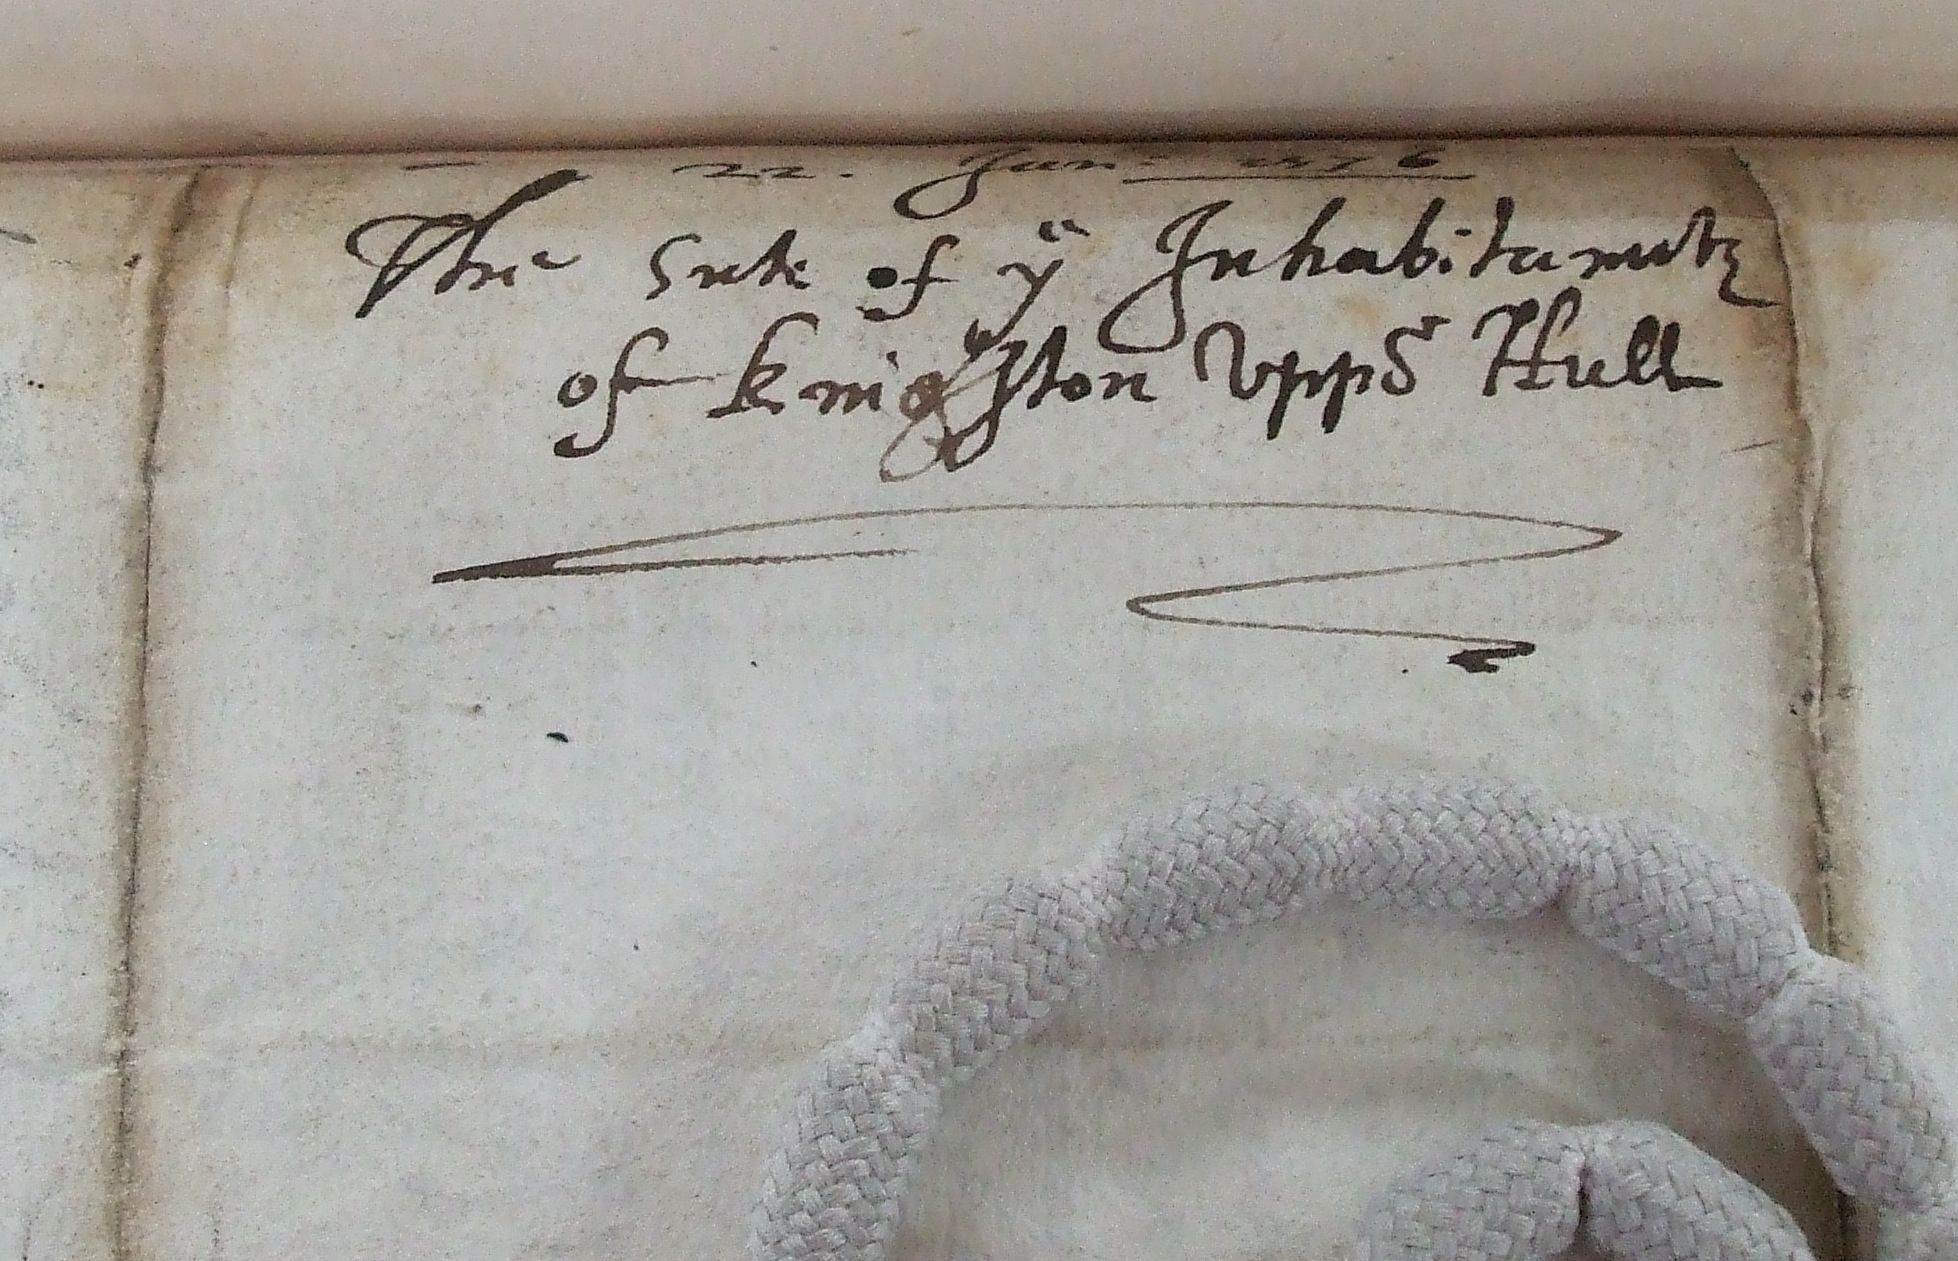 22. Juni 1576
The sute of yͤ Inhabitants
of Kingston vppō Hull